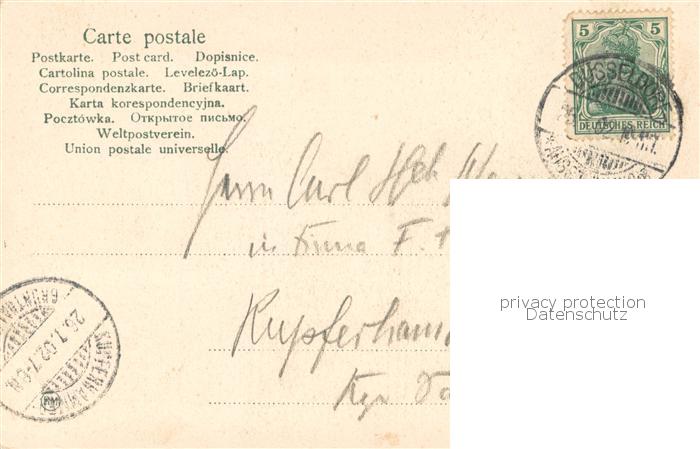 Carte postale
Postkarte. Post card. Dopisnice.
Cartolina postale. Levelező-Lap.
Correspondenzkarte. Briefkaart.
Karta korespondencyjna.
Pocztówka. Открытое письмо.
Weltpostverein.
Union postale universelle.
5 5
DEUTSCHES REICH
DÜSSELDORF
Herrn Carl
in Firma F.
Kupferham
Kgr
26.1.02.7-8N.
privacy protection
Datenschutz